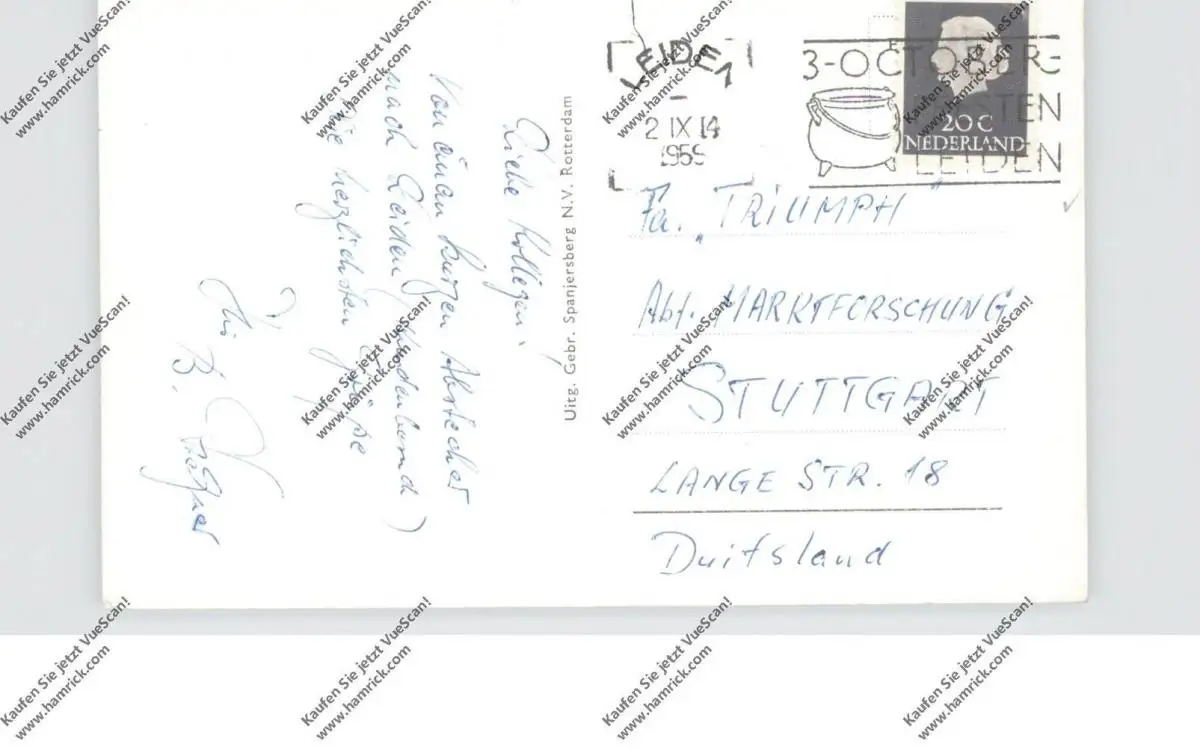 LEIDEN
2 IX 14
1959
3-OCTOBER-
FEESTEN
LEIDEN
20 C
NEDERLAND
Liebe Kollegen,
Von einem kurzen Abstecher
nach Leiden (
)
die herzlichsten Grüße
Ihr
B.
Uitg. Gebr. Spanjersberg N.V. Rotterdam
Fa. "TRIUMPH"
Abt. MARKTFORSCHUNG
STUTTGART
LANGE STR. 18
Duitsland
Kaufen Sie jetzt VueScan!
www.hamrick.com
Kaufen Sie jetzt VueScan!
www.hamrick.com
Kaufen Sie jetzt VueScan!
www.hamrick.com
Kaufen Sie jetzt VueScan!
www.hamrick.com
Kaufen Sie jetzt VueScan!
www.hamrick.com
Kaufen Sie jetzt VueScan!
www.hamrick.com
Kaufen Sie jetzt VueScan!
www.hamrick.com
Kaufen Sie jetzt VueScan!
www.hamrick.com
Kaufen Sie jetzt VueScan!
www.hamrick.com
Kaufen Sie jetzt VueScan!
www.hamrick.com
Kaufen Sie jetzt VueScan!
www.hamrick.com
Kaufen Sie jetzt VueScan!
www.hamrick.com